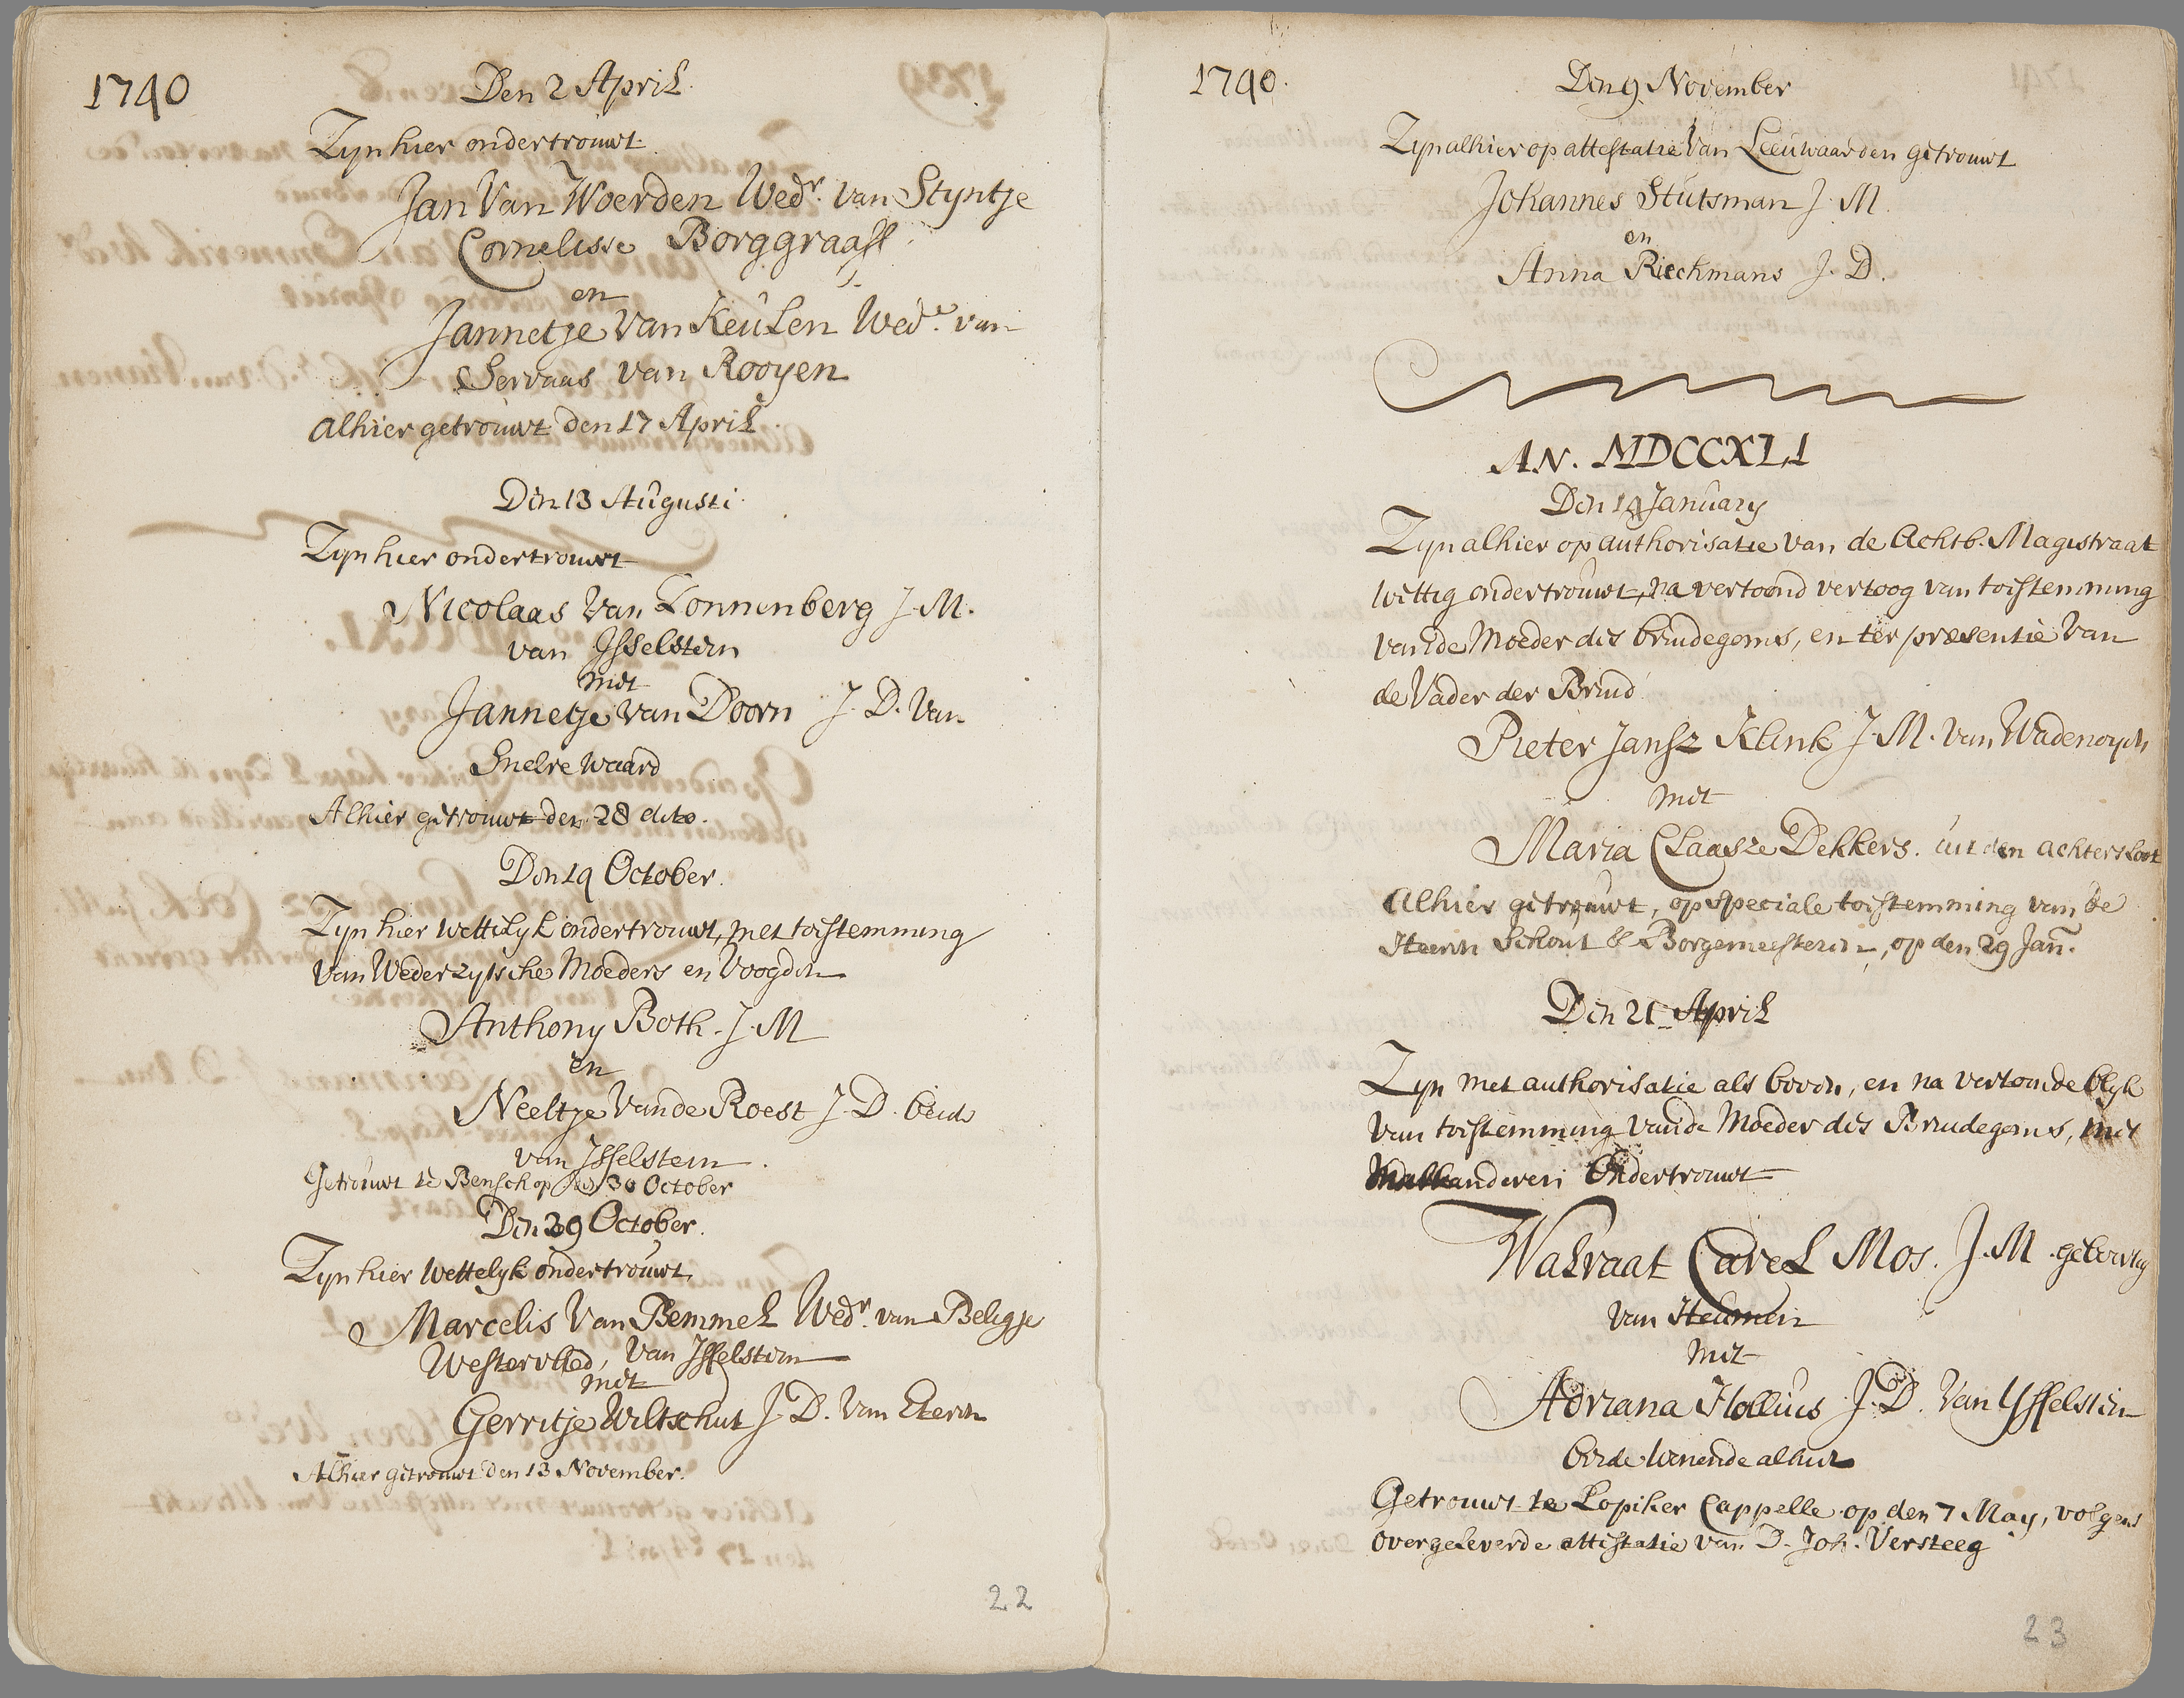 1740
Den 2 April.
Zyn hier ondertrouwt.
Jan Van Woerden Wedr. van Styntje
Cornelisse Borggraaff
en
Jannetje Van Keulen Wede. van
Servaas van Rooyen
Alhier getrouwt den 17 April.
Den 13 Augusti.
Zyn hier ondertrouwt
Nicolaas Van Lonnenberg J. M.
van Ysselstein
met
Jannetje van Doorn J. D. Van
Snelrewaard
Alhier getrouwt den 28 dito.
Den 14 October.
Zyn hier wettelyk ondertrouwt, met toestemming
van Wederzytsche Moeders en Voogden
Anthony Both. J. M
en
Neeltje Vande Roest J. D. beide
van Ysselstein.
Getrouwt te Benschop den 30 October
Den 29 October.
Zyn hier Wettelyk ondertrouwt,
Marcelis Van Bemmel Wedr. van Beligje
Westervlied, van Ysselstein
met
Gerritje Wiltschut J. D. Van Eteren
Alhier getrouwt den 13 November.
22
1740.
Den 9 November
Zyn alhier op attestatie Van Leeuwaarden getrouwt
Johannes Stutsman J. M.
en
Anna Rieckmans J. D.
AN. MDCCXLI
Den 14 January
Zyn alhier op authorisatie van de Achtb. Magistraat
wettig ondertrouwt, na vertoond vertoog van toestemming
van de Moeder des bruidegoms, en ter præsentie Van
de Vader der Bruid
Pieter Jansz Klink J. M. van Wadenoyen
met
Maria Claasze Dekkers. uit den achtersloot
Alhier getrouwt, op speciale toestemming van de
Heeren Schout & Borgemeesteren, op den 29 Jan.
Den 21 April
Zyn met authorisatie als boven, en na vertoonde blyk
van toestemming vande Moeder des Bruidegoms, met
Malkanderen Ondertrouwt
Walraat Carel Mos. J. M. gebortig
van Heumen
met
Adriana Hollius J. D. Van Ysselstein
beide wonende alhier
Getrouwt te Lopiker Cappelle op den 7 May, volgens
overgeleverde attestatie van D. Joh. Versteeg
23